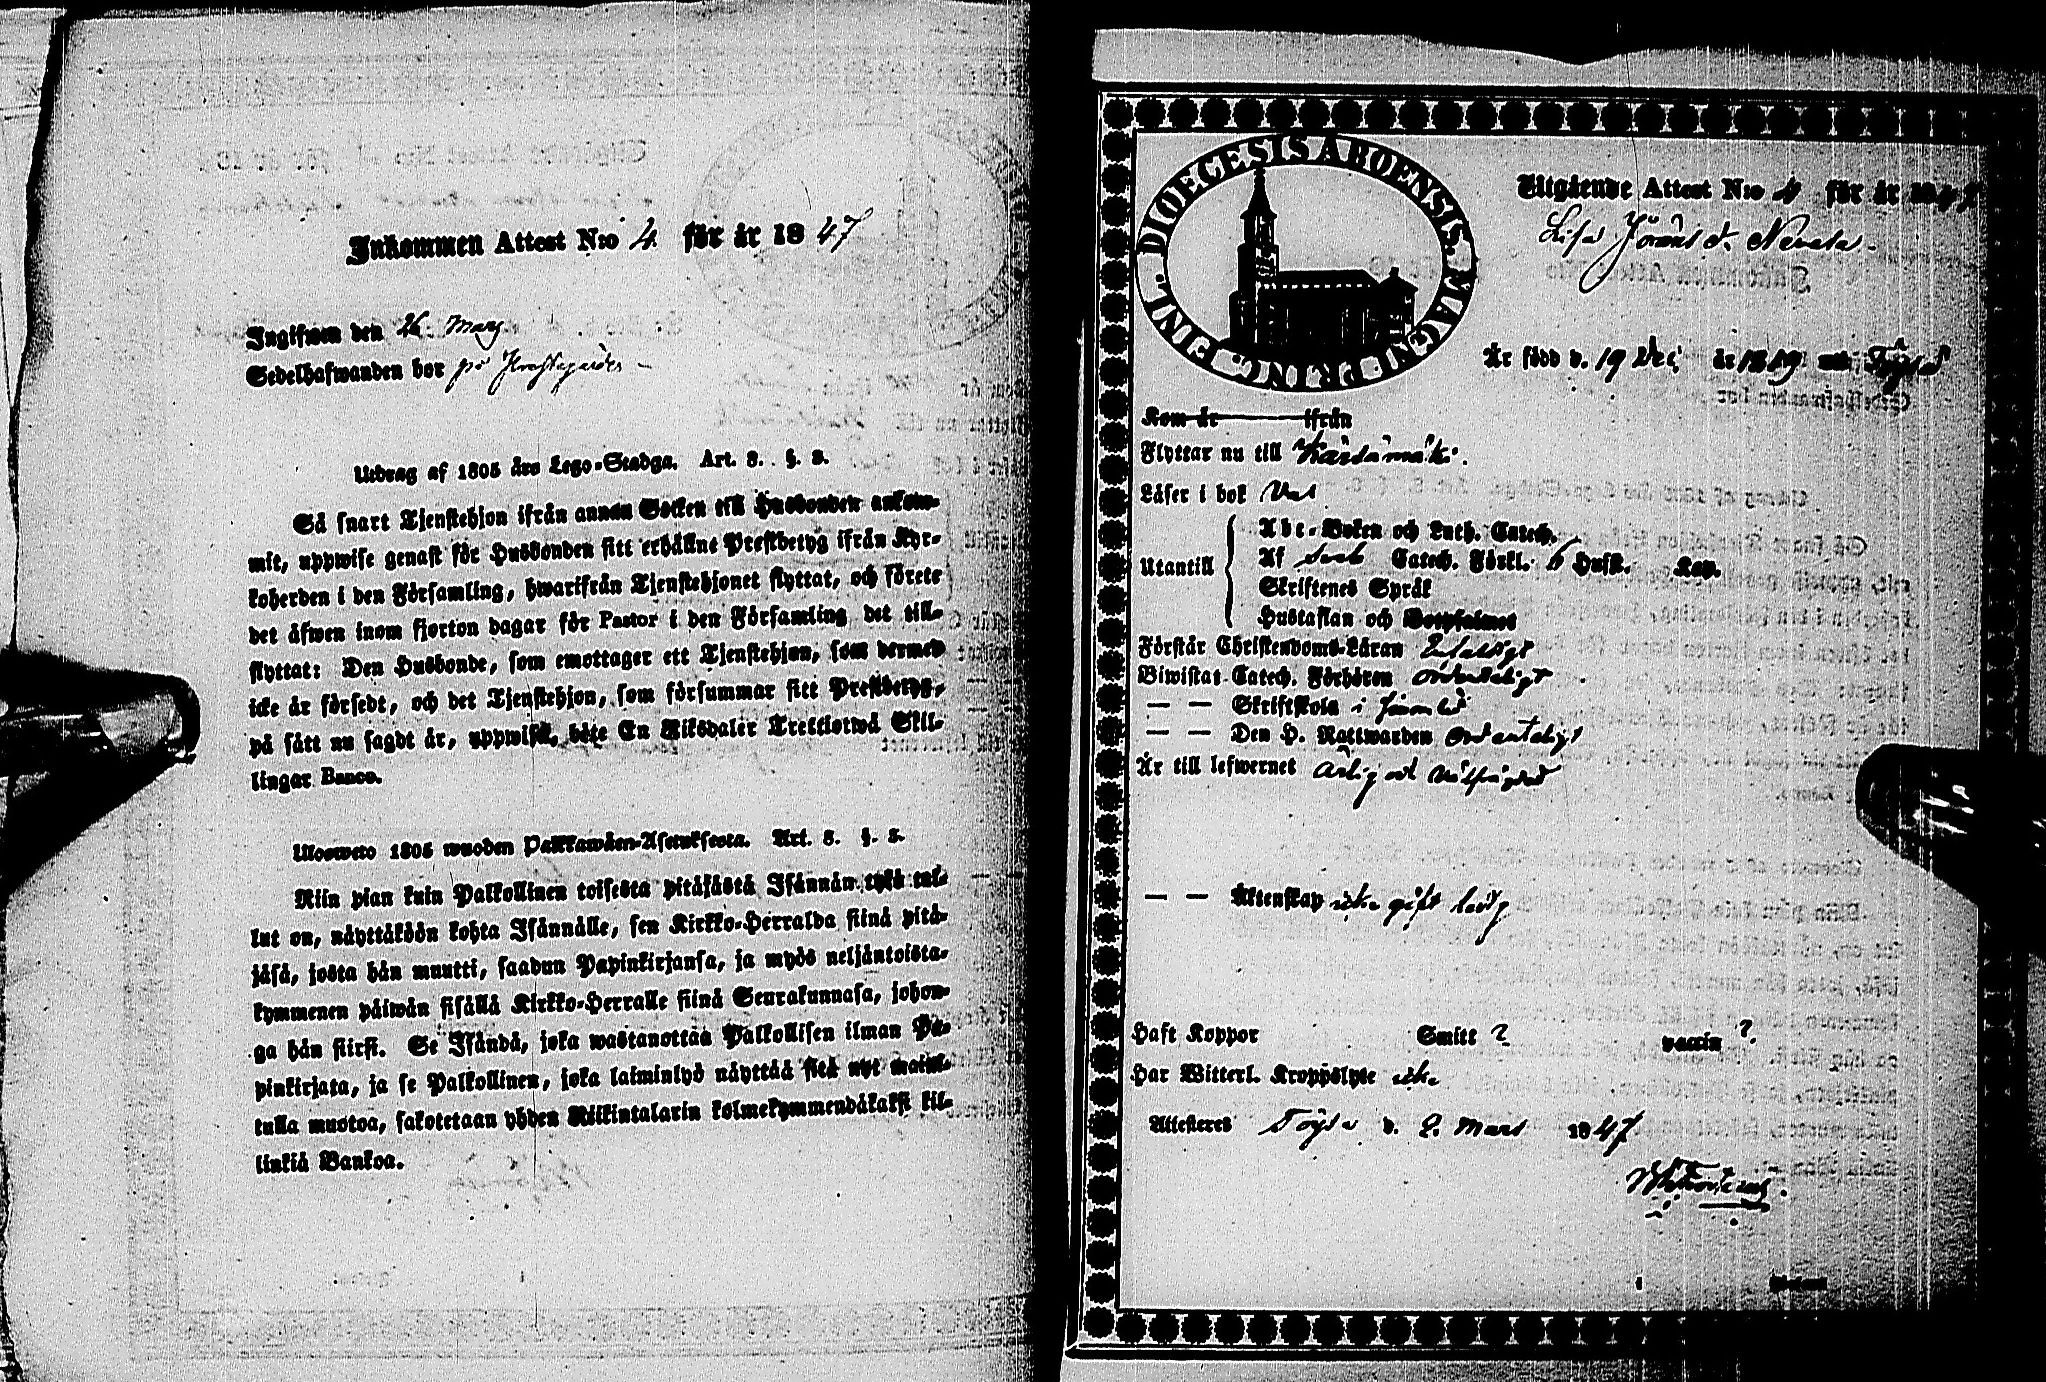 Inkommen Attest N:o 4. för är 1847
Ingifwen den 26. Mars
Sedelhafwanden bor på
Utdrag af 1805 års Lego-Stadga. Art. 3. §. 3.
Så snart Tjenstehjon ifrån annan Socken till Husbonden ankom-
mit, uppwise genast för Husbonden sitt erhållne Prestbetyg ifrån Kyr-
koherden i den Församling, hwarifrån Tjenstehjonet flyttat, och förete
det äfwen inom fjorton dagar för Pastor i den Församling det till-
flyttat: Den Husbonde, som emottager ett Tjenstehjon, som dermed
icke är försedt, och det Tjenstehjon, som försummar sitt Prestbetyg,
på sätt nu sagdt är, uppwisa, böte En Riksdaler Trettiotwå Skil-
lingar Banco.
Ulosweto 1805 wuoden Palkkawäen-Asetuksesta. Art. 3. §. 3.
Niin pian kuin Palkollinen toisesta pitäjästä Isännän tykö tul-
lut on, näyttäköön kohta Isännälle, sen Kirkko-Herralda siinä pitä-
jäsä, josta hän muutti, saadun Papinkirjansa, ja myös neljäntoista-
kymmenen päiwän sisällä Kirkko-Herralle siinä Seurakunnasa, johon-
ga hän siirsi. Se Isändä, joka wastanottaa Palkollisen ilman Pa-
pinkirjata, ja se Palkollinen, joka laiminlyö näyttää sitä nyt maini-
tulla muotoa, sakotetaan yhden Riikintalarin kolmekymmendäkaksi kil-
linkiä Bankoa.
DIOECESIS ABOENSIS. MAGNI PRINC. FINL.
Utgående Attest N:o 4 för år 1847
Lisa Jönäs d. Nevala.
Är född d. 19 Dec. år 1819 uti Töysä
Kom år ifrån
Flyttar nu till Kärsämäki.
Läser i bok Väl
Utantill
Abc-Boken och Luth. Catech.
Af Sveb. Catech. Förkl. 6 Hufst. Kap.
Skriftenes Språk
Hustaflan och Botpsalmes
Förstår Christendoms-Läran
Biwistat Catech. Förhören ordenteligt
— — Skriftskola i
— — Den H. Nattwarden ordenteligt
Är till lefwernet Ärlig och Välfrägdad
— — Äktenskap icke gift ledig
Haft Koppor Smitt ? vaccin ?.
Har Witterl. Kroppslyte icke
Attesteres Töysä d. 2. Mars 1847